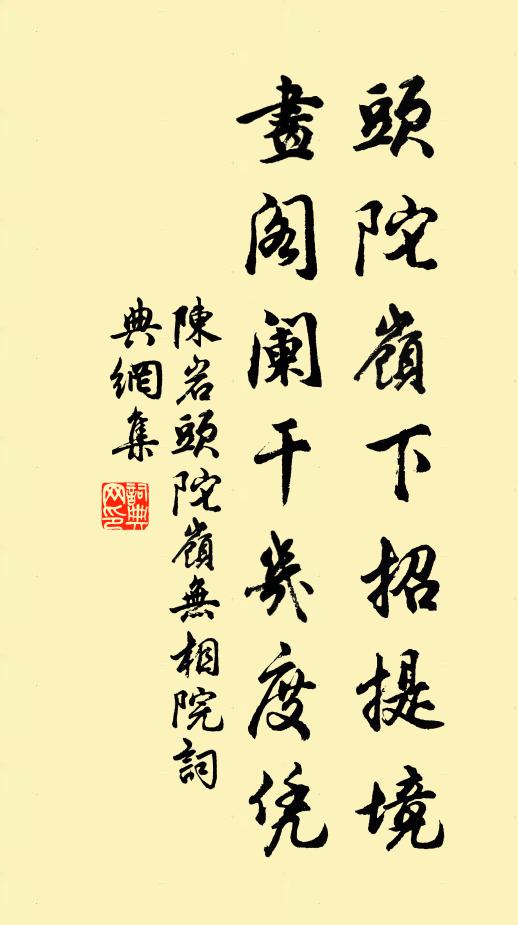 頭陀嶺下招提境
畫閣阑干幾度凭
陳岩頭陀嶺無相院詞
典網集
詞典
网印